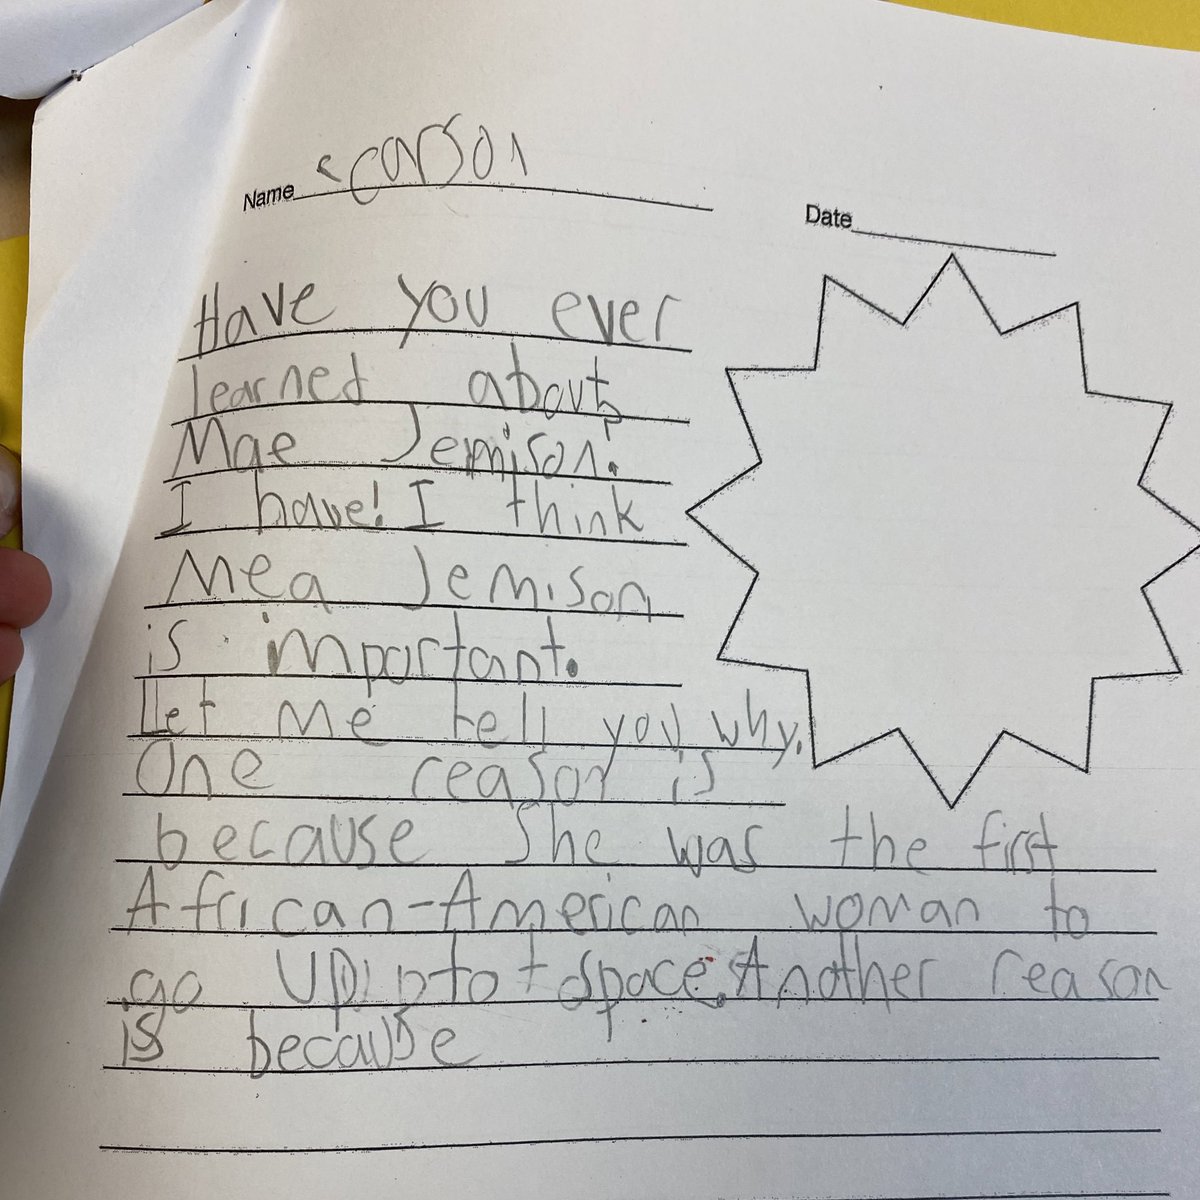 Name carson
Date
Have you ever
learned about
Mae Jemison?
I have! I think
Mea Jemison
is important.
Let me tell you why.
One reason is
because She was the first
African-American woman to
go UP into space. Another reason
is because